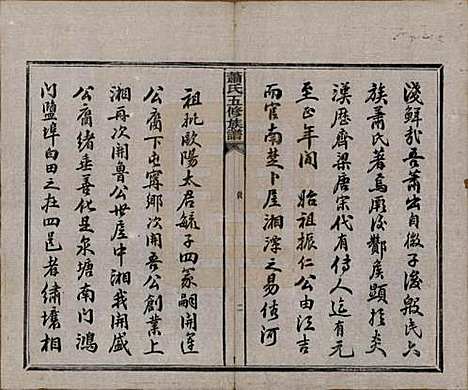 淺鮮哉吾蕭出自微子後殷民六
族蕭氏著焉厥後酇侯顯於炎
漢歷齊梁唐宋代有傳人迄有元
至正年間 始祖振仁公由江吉
而官南楚卜居湘潭之易俗河
蕭氏五修族譜
二
祖妣歐陽太君毓子四冢嗣開運
公裔下屯甯鄉次開吾公創業上
湘再次開魯公世居中湘我開盛
公裔緒垂善化是泉塘南門鴻
門鹽埠向田之在四邑者繡壤相